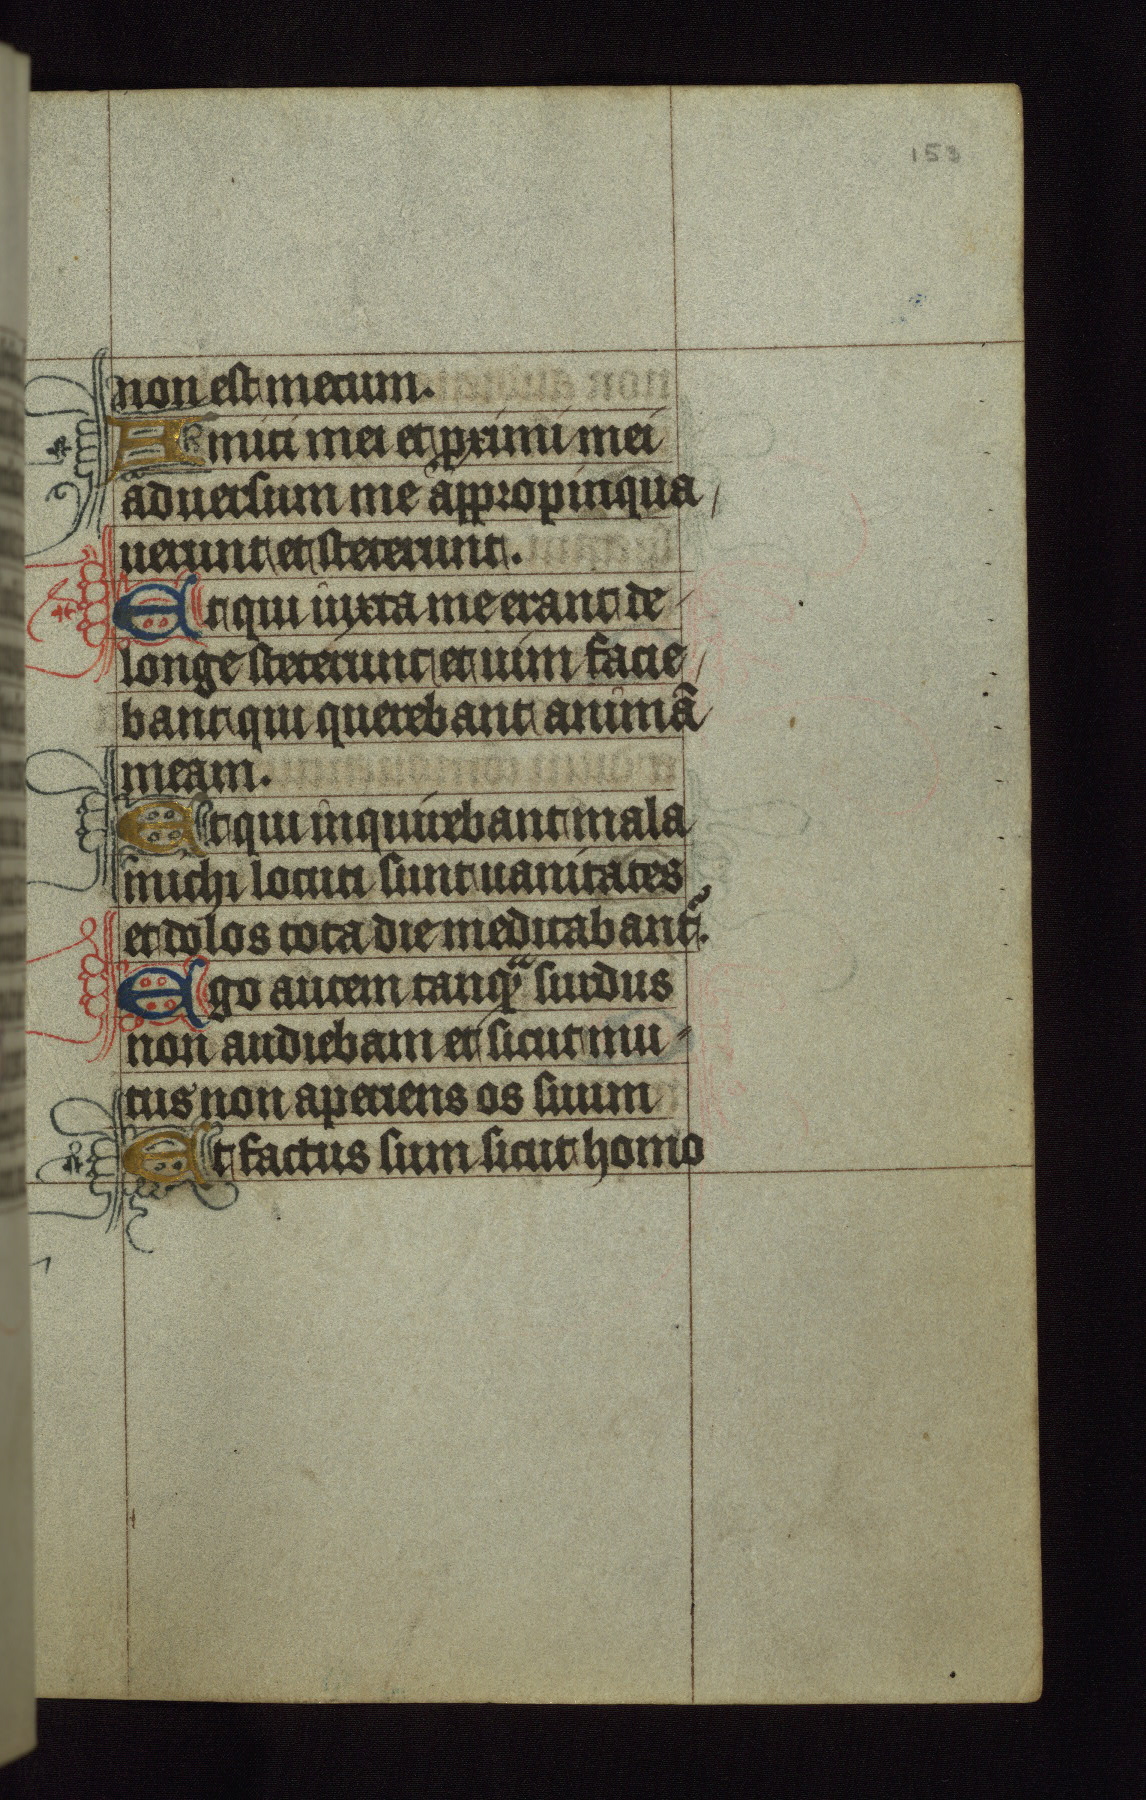 153
non est mecum.
Amici mei et pximi mei
aduersum me appropinqua/
uerunt et steterunt.
Et qui iuxta me erant de
longe steterunt et uim facie/
bant qui querebant animā
meam.
Et qui inquirebant mala
michi locuti sunt uanitates
et dolos tota die meditabant᷑.
Ego autem tanqᷓ surdus
non audiebam et sicut mu-
tus non aperiens os suum
Et factus sum sicut homo